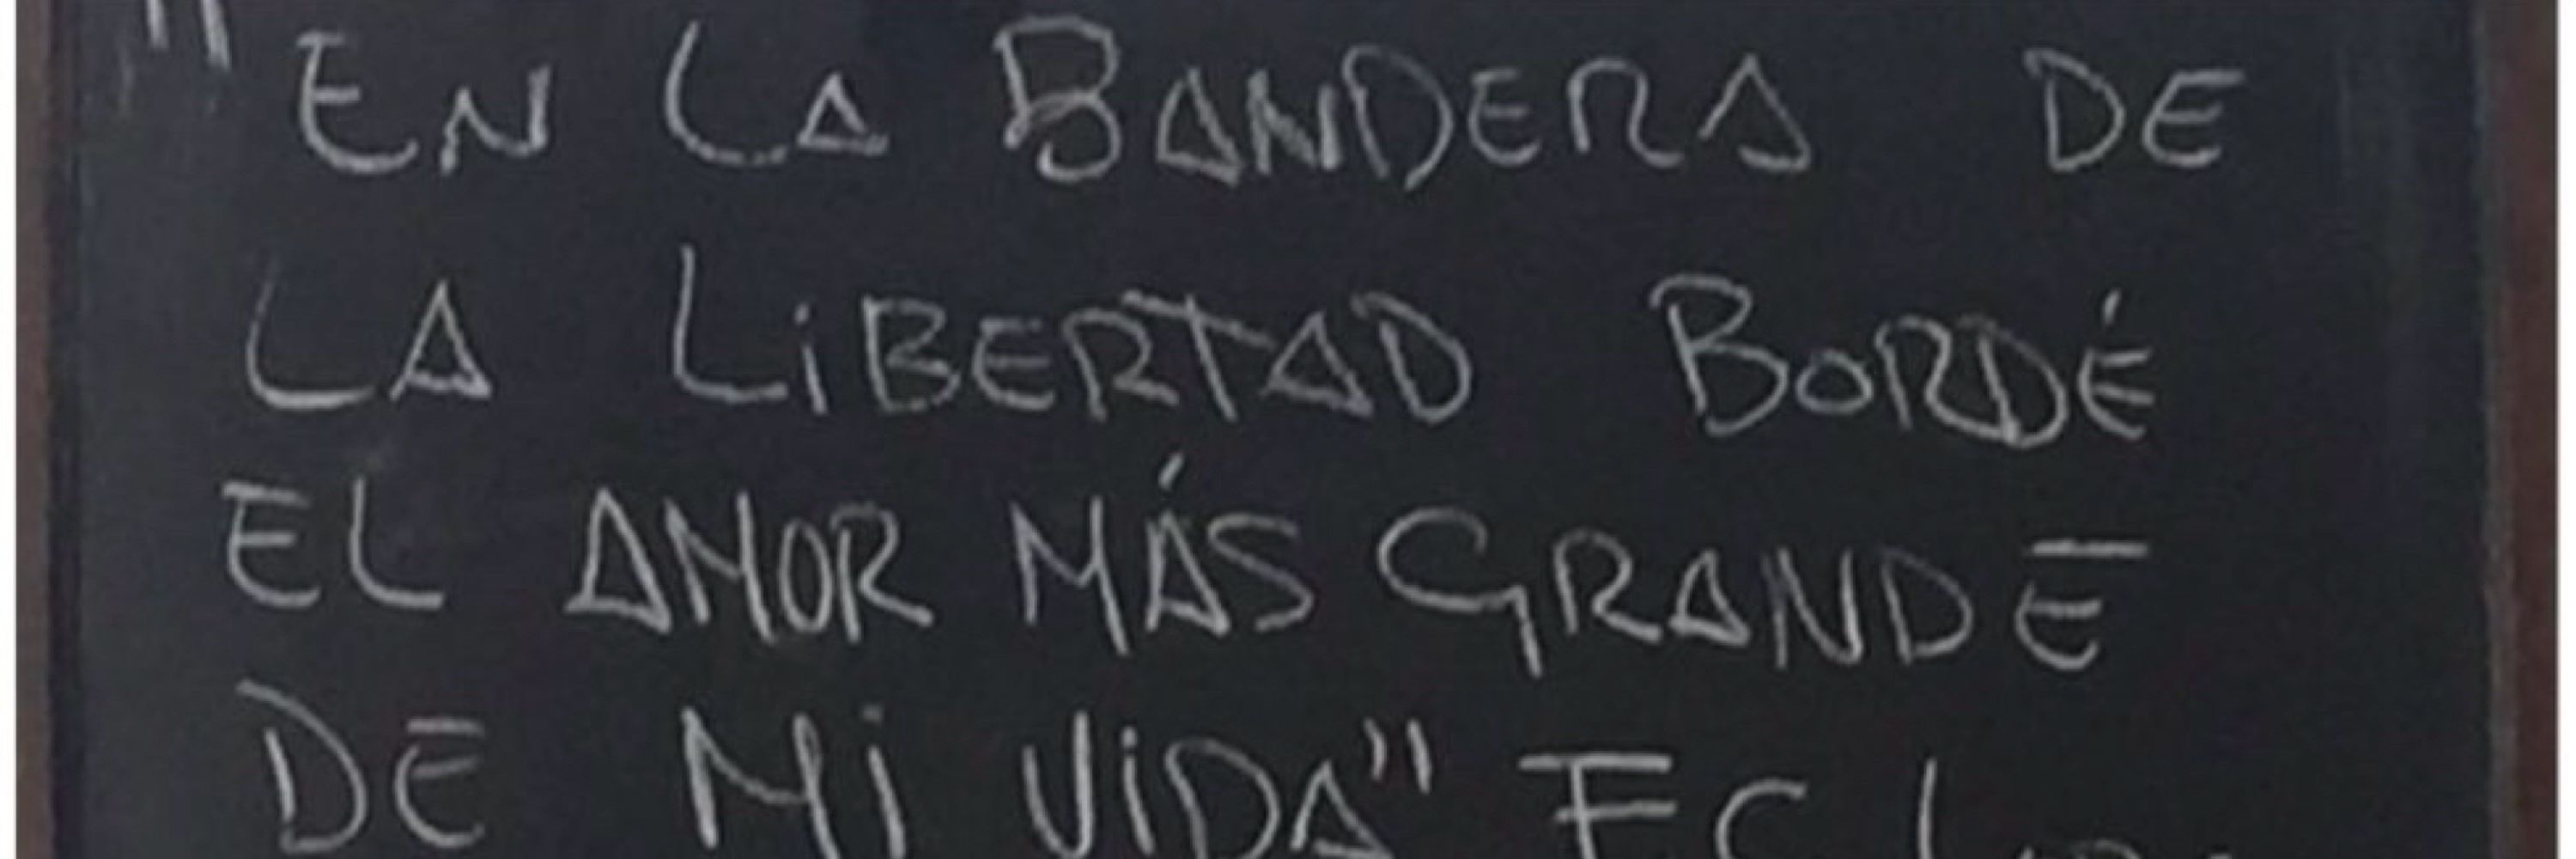 "EN LA BANDERA DE
LA LiBERTAD BORDÉ
EL AMOR MÁS GRANDE
DE Mi ViDA"